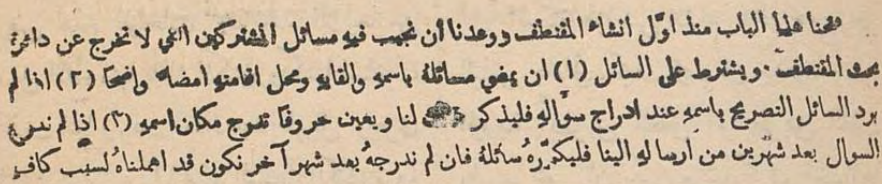 فتحنا هذا الباب منذ اوّل انشاء المقتطف ووعدنا أن نجيب فيه مسائل المشتركين التي لا تخرج عن دائرة
بحث المقتطف. ويشترط على السائل (١) ان يمضي مسائلهُ باسمهِ والقابهِ ومحل اقامتهِ امضاءً واضحًا (٢) اذا لم
يرد السائل التصريح باسمهِ عند ادراج سوالهِ فليذكر لنا ويعين حروفًا تدرج مكان اسمهِ (٣) اذا لم ندرج
السوال بعد شهرين من ارسالهِ الينا فليكرّرهُ سائلهُ فان لم ندرجهُ بعد شهر آخر نكون قد اهملناهُ لسبب كافٍ